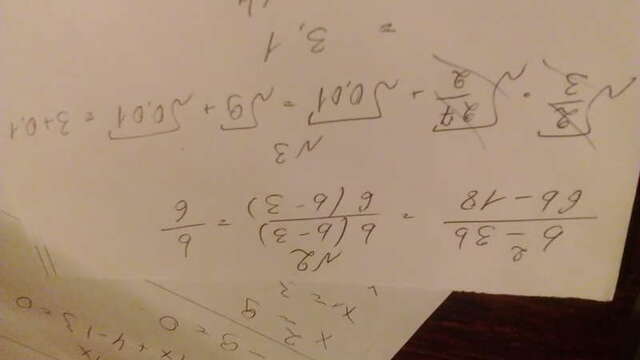 x² = 9
- 9 = 0
x + 4 - 13 = 0
№2
(b² - 3b)/(6b - 18) = b(b - 3)/6(b - 3) = b/6
№3
√(2/3) · √(27/2) + √0,01 = √9 + √0,01 = 3 + 0,1
= 3,1